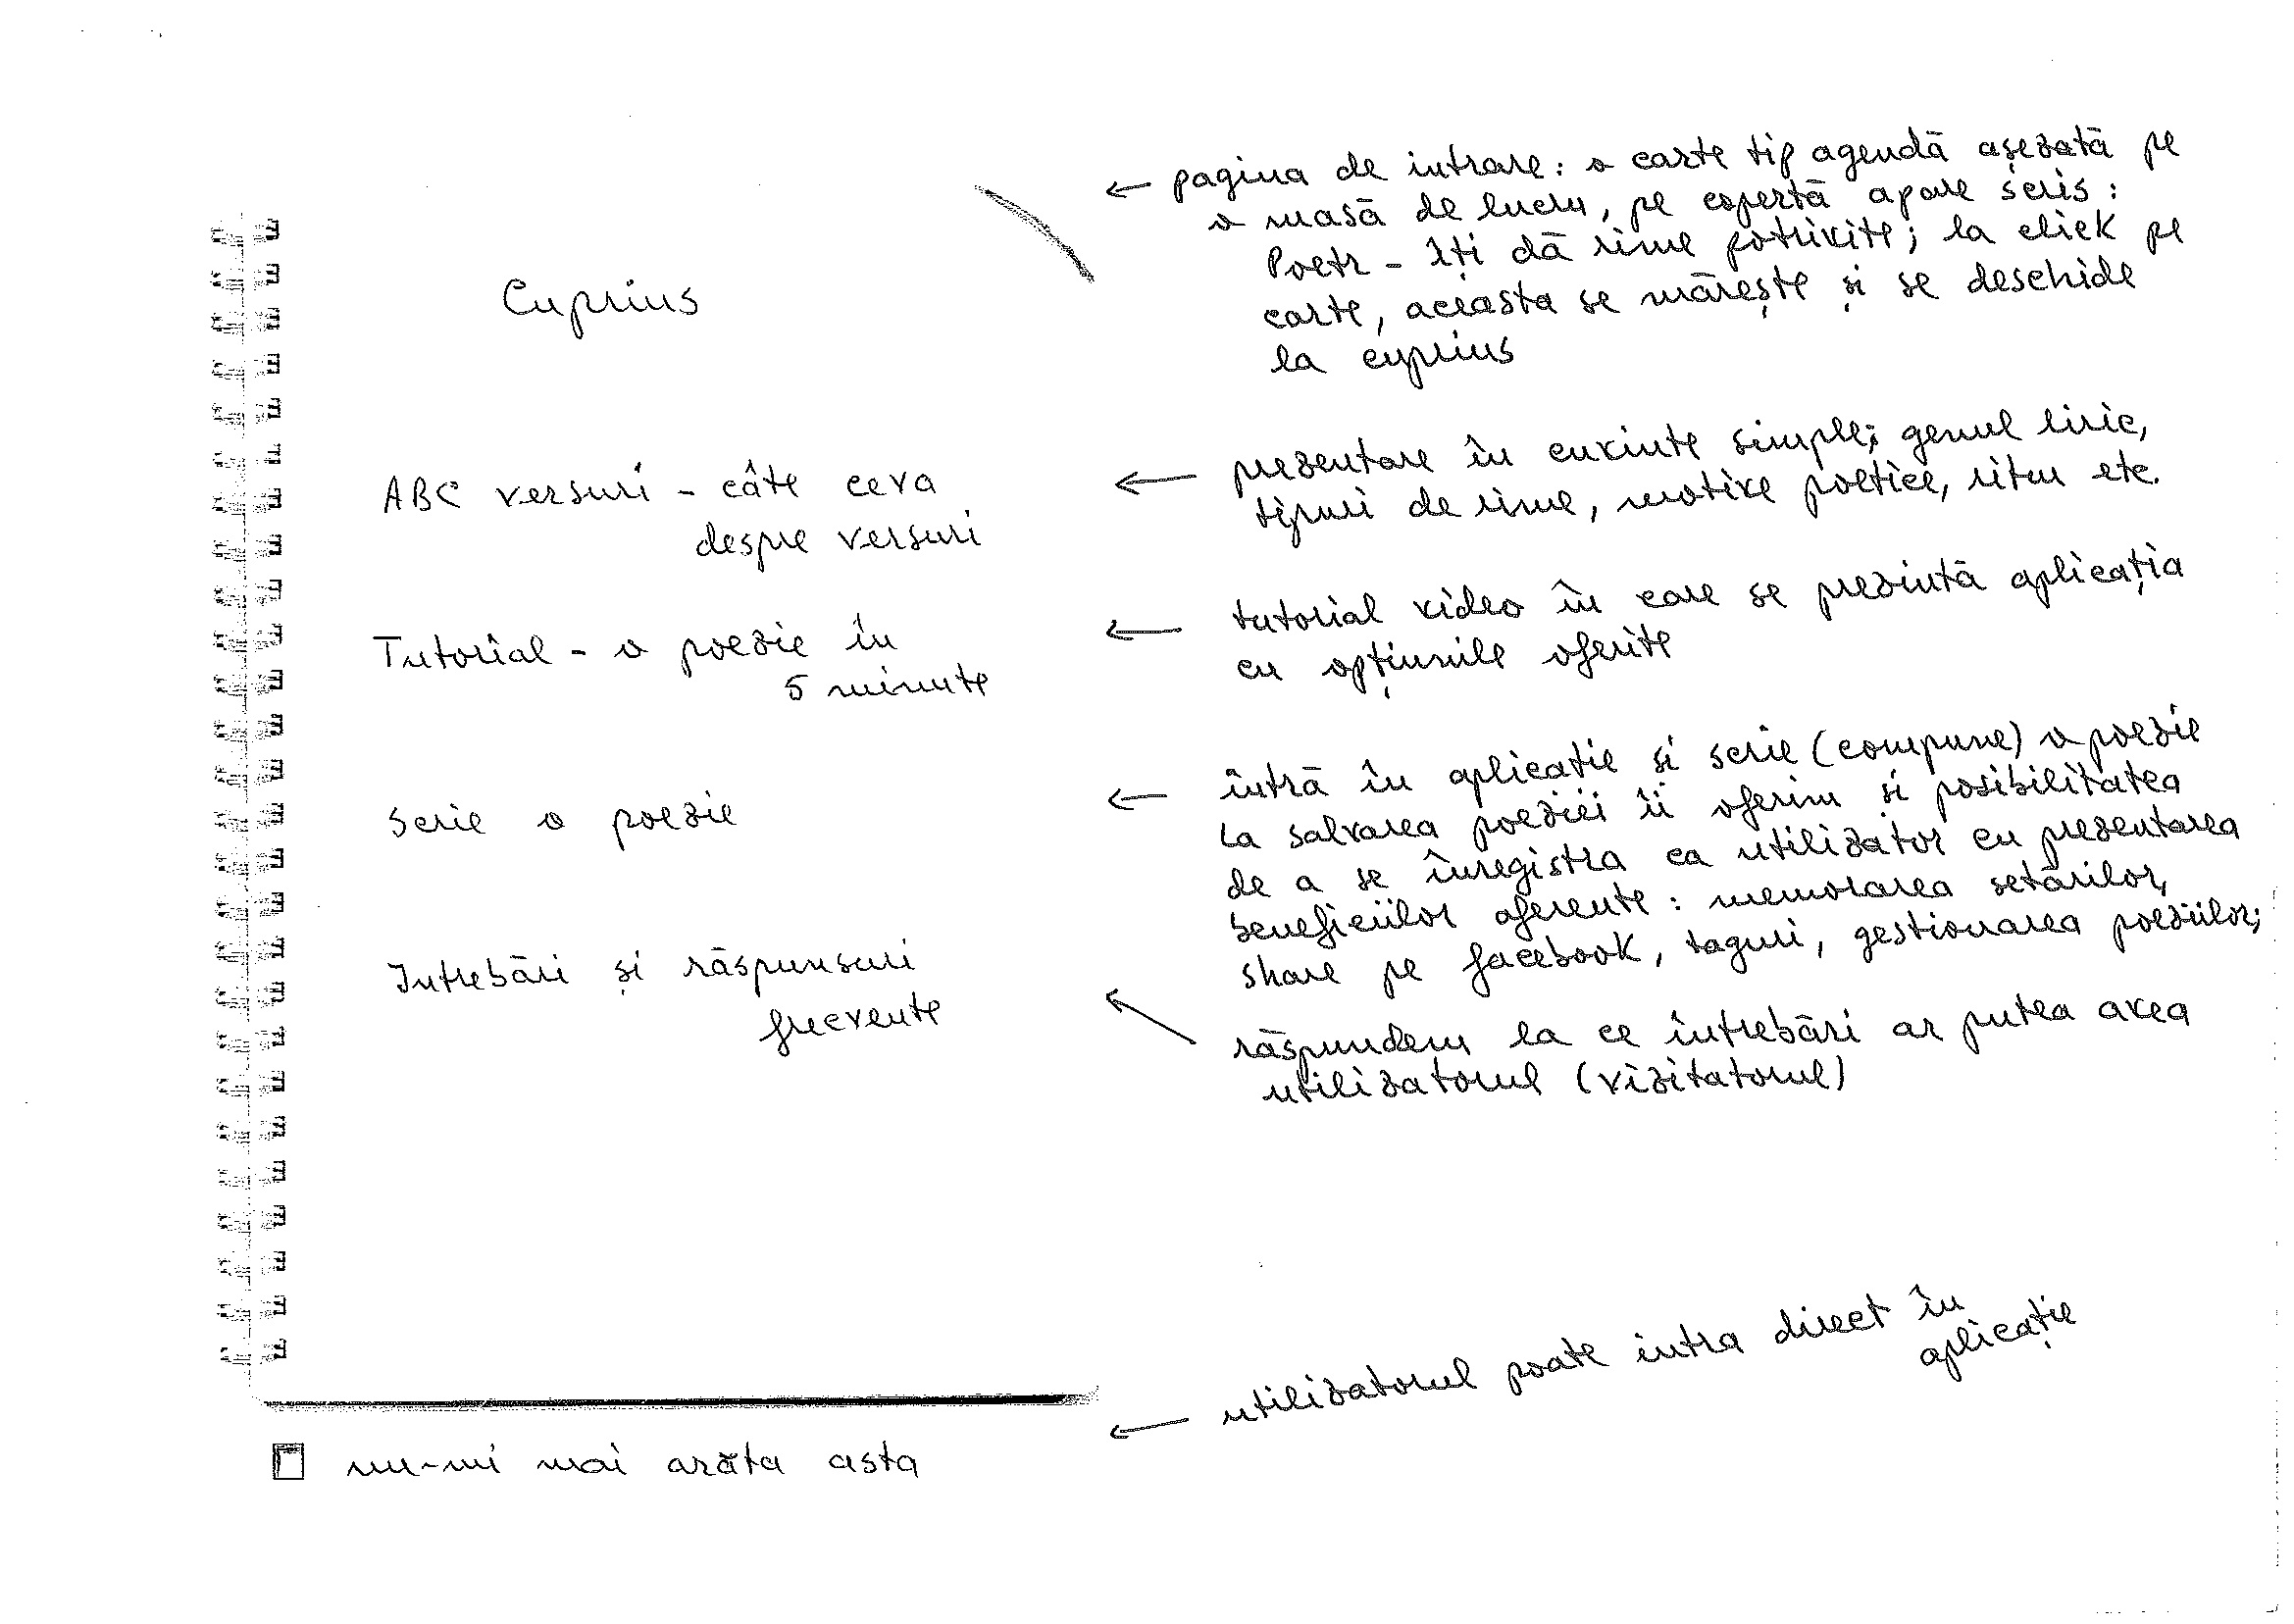 Cuprins
ABC versuri - câte ceva
despre versuri
Tutorial - o poezie în
5 minute
Scrie o poezie
Intrebări și răspunsuri
frecvente
nu-mi mai arăta asta
← pagina de intrare: o carte tip agendă așezată pe
o masă de lucru, pe copertă apare scris:
Poetr - îți dă rime potrivite; la click pe
carte, aceasta se mărește și se deschide
la cuprins
← prezentare în cuvinte simple; genul liric,
tipuri de rime, motive poetice, ritm etc.
← tutorial video în care se prezintă aplicația
cu opțiunile oferite
← intră în aplicație și scrie (compune) o poezie
La salvarea poeziei îi oferim și posibilitatea
de a se înregistra ca utilizator cu prezentarea
beneficiilor aferente: memorarea setărilor,
share pe facebook, taguri, gestionarea poeziilor;
răspundem la ce întrebări ar putea avea
utilizatorul (vizitatorul)
← utilizatorul poate intra direct în
aplicație